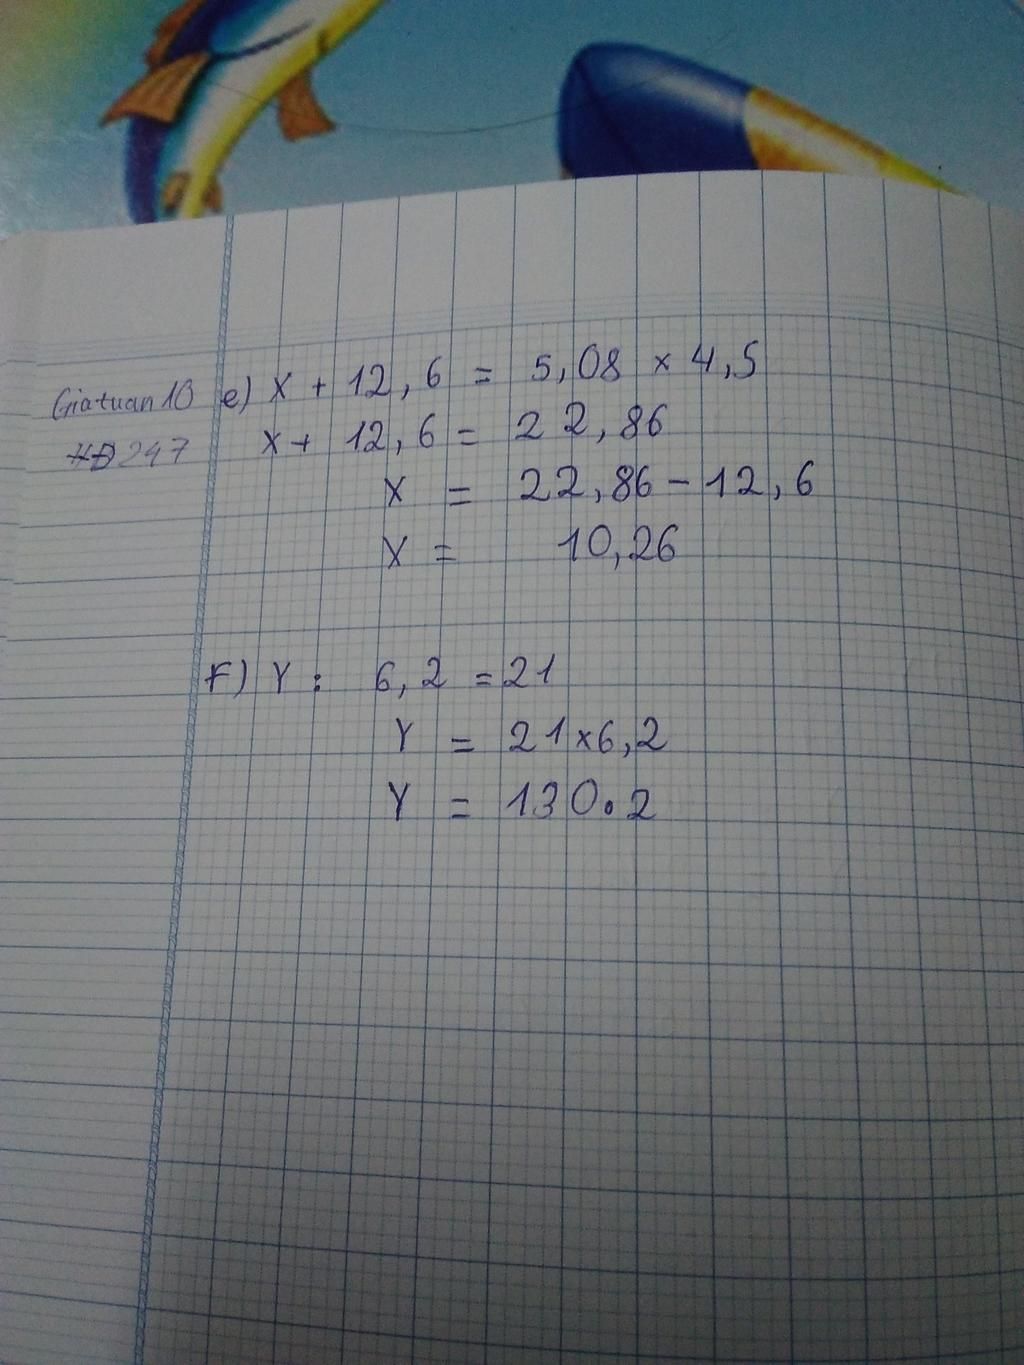 Giatuan10 e) X + 12,6 = 5,08 x 4,5
247 X + 12,6 = 22,86
X = 22,86 - 12,6
X = 10,26
F) Y : 6,2 = 21
Y = 21 x 6,2
Y = 130.2